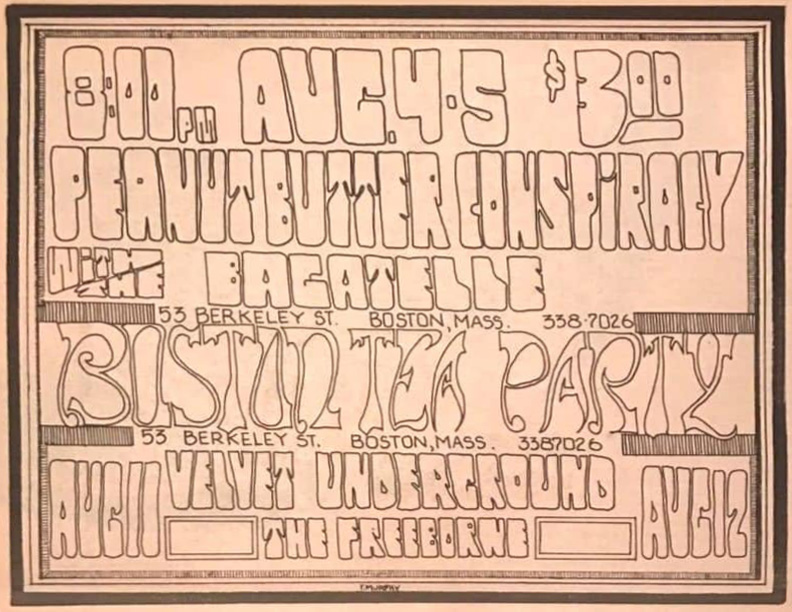 8:00 PM AUG. 4·5 $3.00
PEANUT BUTTER CONSPIRACY
WITH THE BAGATELLE
53 BERKELEY ST. BOSTON, MASS. 338·7026
BOSTON TEA PARTY
53 BERKELEY ST. BOSTON, MASS. 3387026
AUG 11 VELVET UNDERGROUND AUG 12
THE FREEBORNE
T. MURPHY